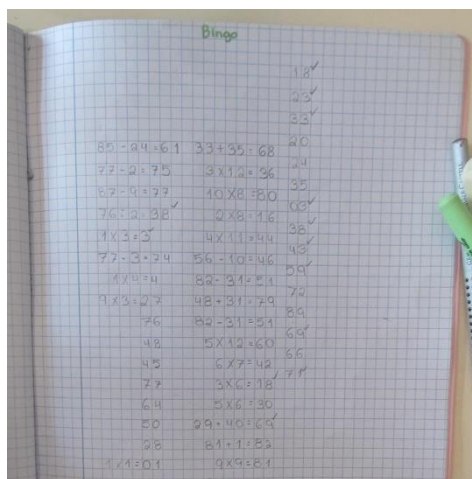 Bingo
18✓
23✓
33✓
20
24
35
03✓
38✓
43✓
59✓
72
89
69✓
66
71✓
85-24=61
77-2=75
76:2=38✓
1x3=3✓
77-3=74
1x4=4
9x3=27
76
48
45
77
64
50
28
1x1=01
33+35=68
3x12=36
10x8=80
2x8=16
4x11=44
56-10=46
82-31=51
48+31=79
82-31=51
5x12=60
6x7=42
3x6=18✓
5x6=30
29+40=69✓
81+1=82
9x9=81